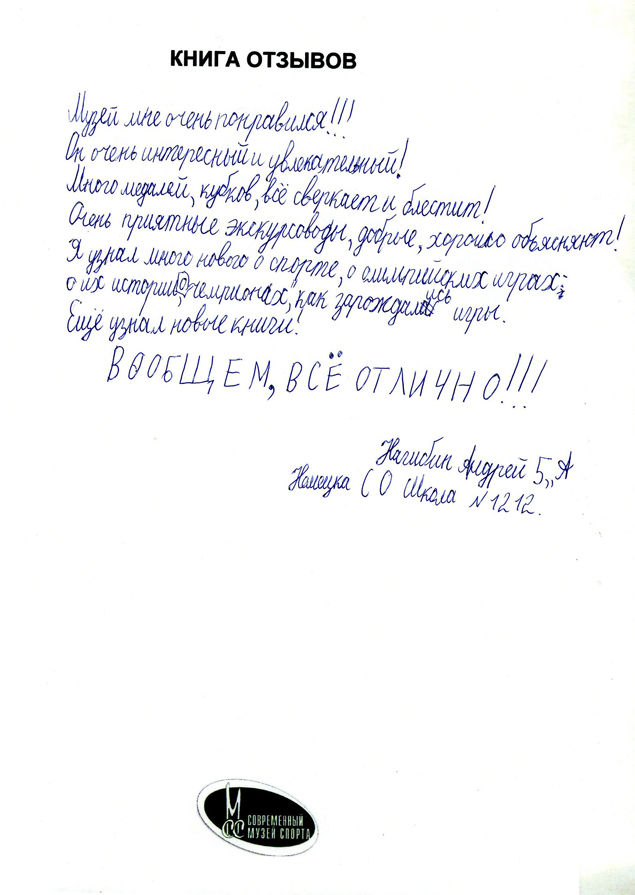 КНИГА ОТЗЫВОВ
Музей мне очень понравился!!!
Он очень интересный и увлекательный!
Много медалей, кубков, всё сверкает и блестит!
Очень приятные экскурсоводы, добрые, хорошо объясняют!
Я узнал много нового о спорте, о олимпийских играх:
о их истории, о чемпионах, как зарождались игры.
Ещё узнал новые книги!
ВООБЩЕМ, ВСЁ ОТЛИЧНО!!!
Нагибин Андрей 5„А
СО Школа №1212.
М
СС СОВРЕМЕННЫЙ
МУЗЕЙ СПОРТА